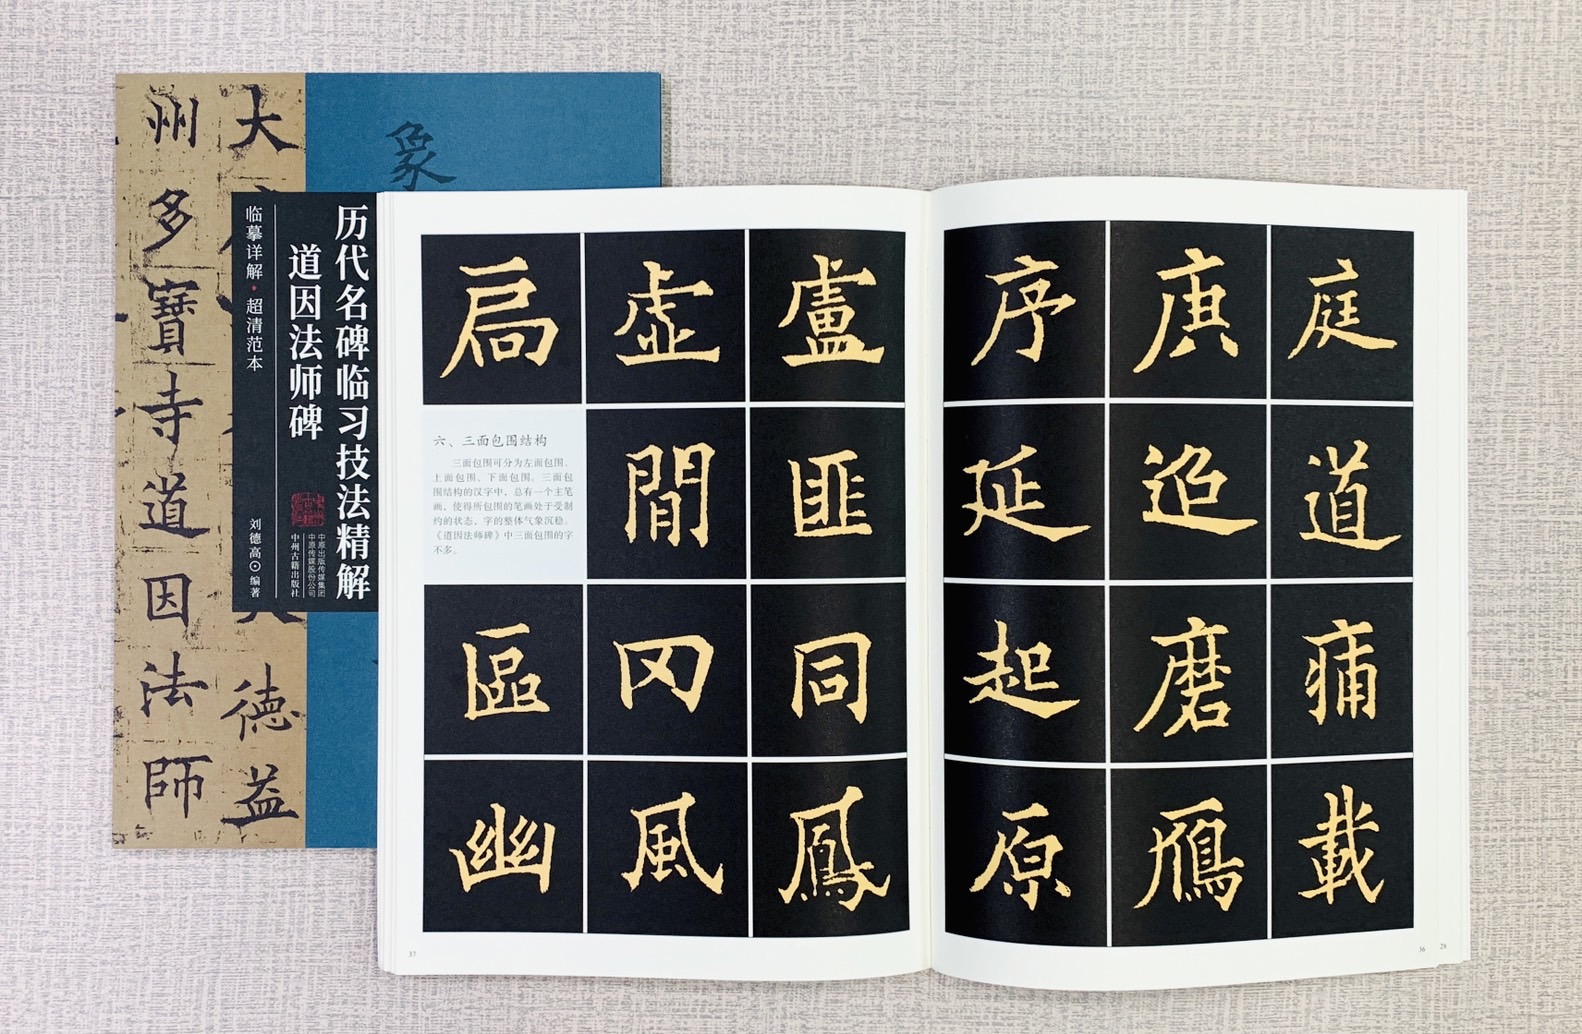 大
州多寶寺道因法師
德益
象
历代名碑临习技法精解
道因法师碑
临摹详解·超清范本
刘德高⊙编著
中原出版传媒集团
中原传媒股份公司
中州古籍出版社
庭道痡載
庚追磨鴈
序延起原
盧匪同鳳
虛間冈風
扃
六、三面包围结构
三面包围可分为左面包围、
上面包围、下面包围。三面包
围结构的汉字中，总有一个主笔
画，使得所包围的笔画处于受制
约的状态，字的整体气象沉稳。
《道因法师碑》中三面包围的字
不多。
區幽
37
36
28